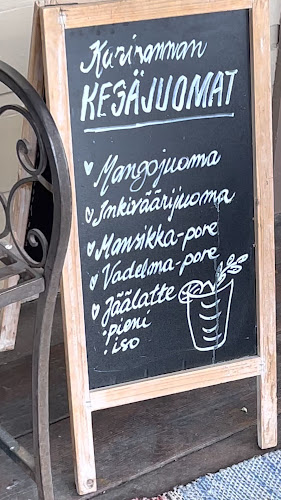 Kurirannan
KESÄJUOMAT
♥ Mangojuoma
♥ Inkiväärijuoma
♥ Mansikka-pore
♥ Vadelma-pore
♥ Jäälatte
: pieni
: iso